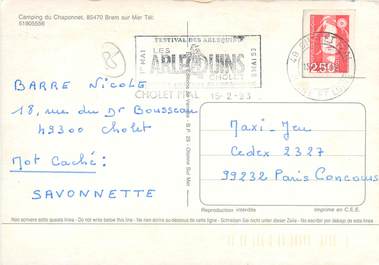 Camping du Chaponnet, 85470 Brem sur Mer Tél:
51905556
FESTIVAL DES ARLEQUINS
1er MAI
8 MAI 93
LES
ARLEQUINS
CHOLET
CHOLET PPAL 15-2-93
2,50
BARRE Nicole
18, rue du Dr Bousseau
49300 Cholet
Mot Caché:
SAVONNETTE
Maxi-Jeu
Cedex 2327
99232 Paris Concours
Reproduction interdite
Imprimé en C.E.E.
Non scrivere sotto questa linea - Do not write below this line - N'écrire rien au-dessous de cette ligne - Schreiben Sie nicht unter dieser Zeile - No Escribir por debajo de esta linea